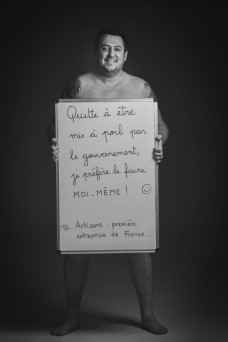 Quitte à être
mis à poil par
le gouvernement,
je préfère le faire
MOI-MÊME ! ☺
* Artisans : première
entreprise de France...